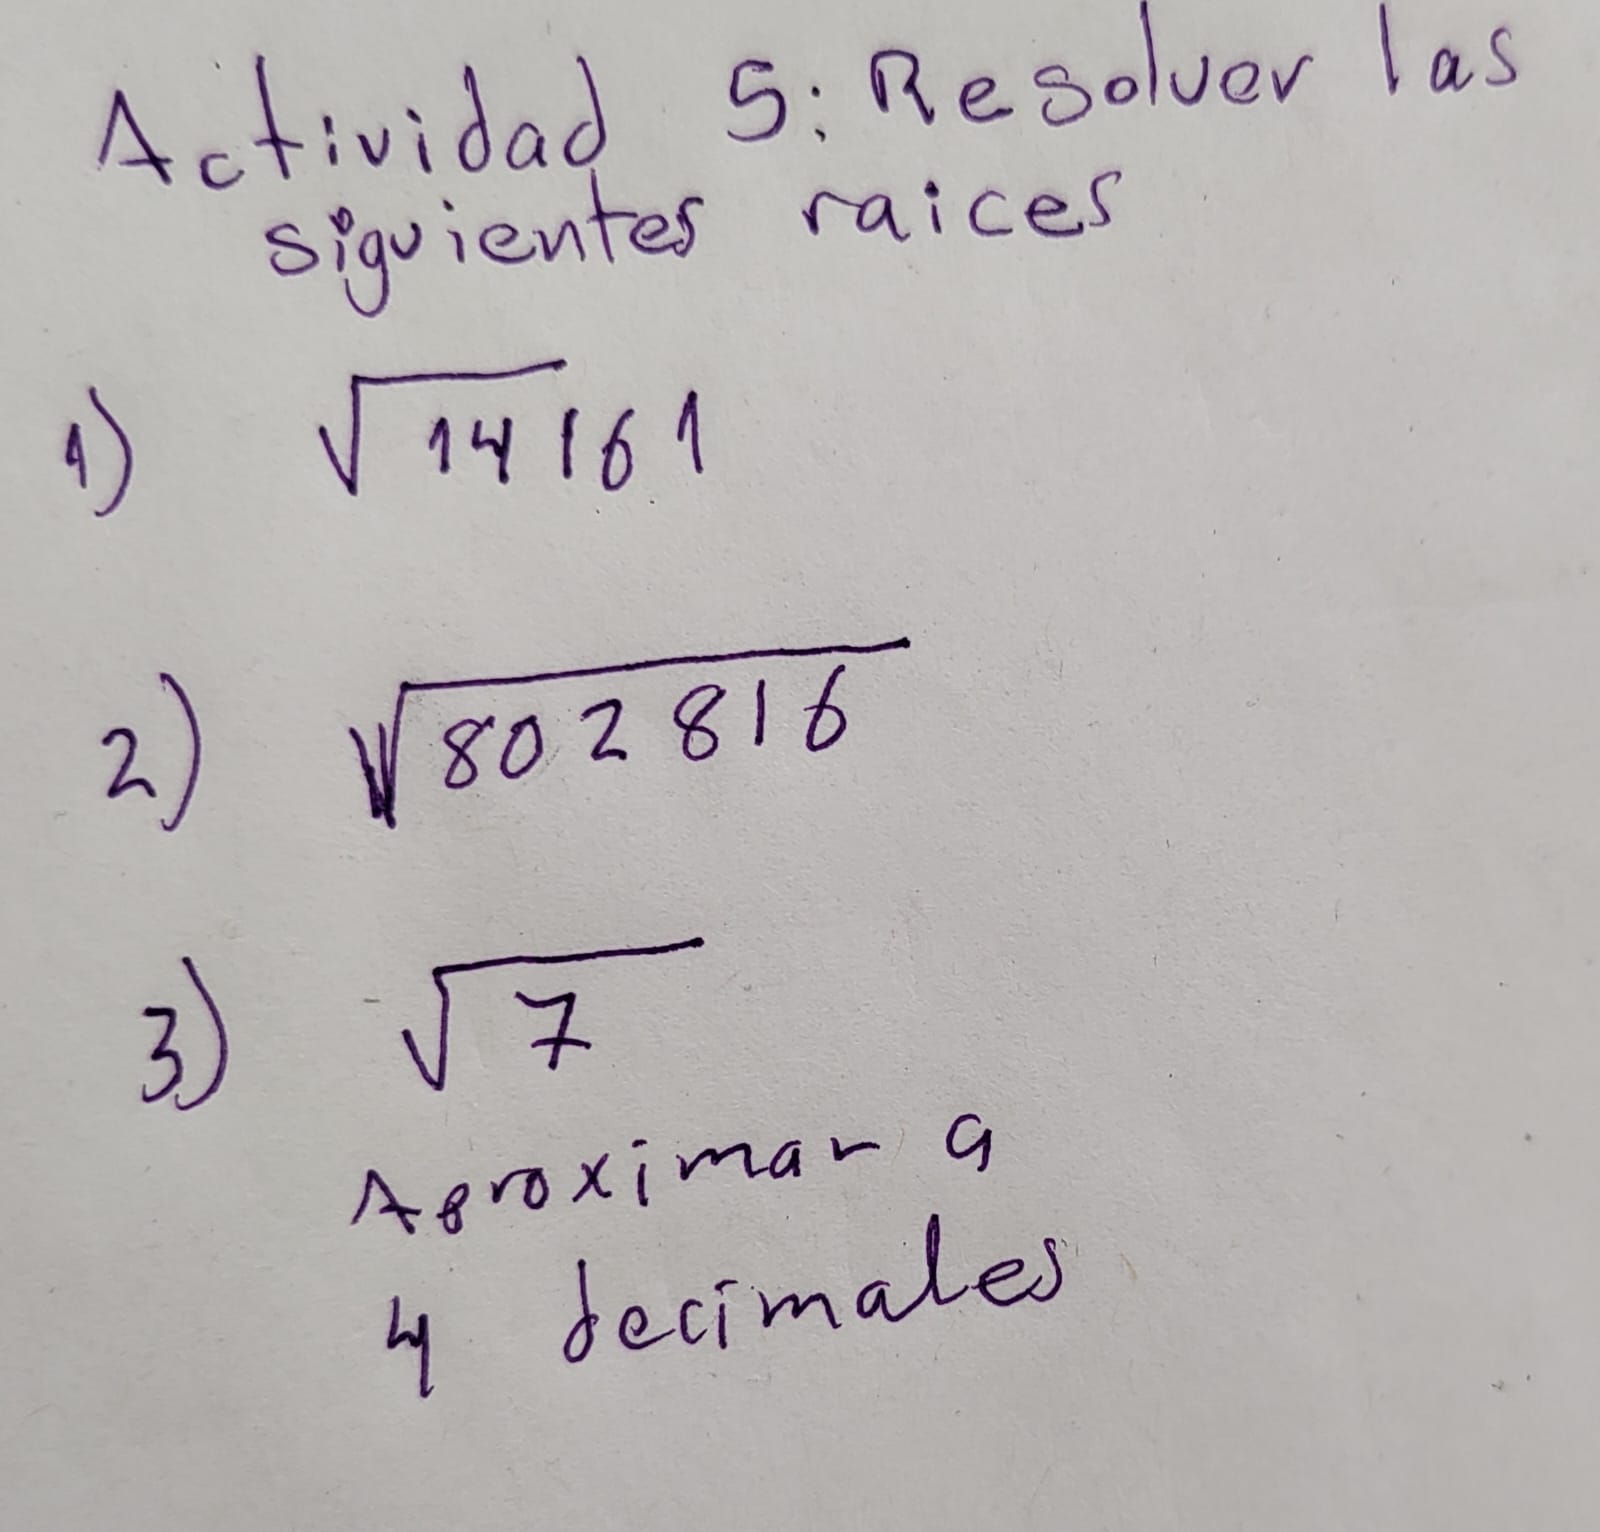 Actividad 5: Resolver las
siguientes raices
1) √14161
2) √802816
3) √7
Aproximar a
4 decimales